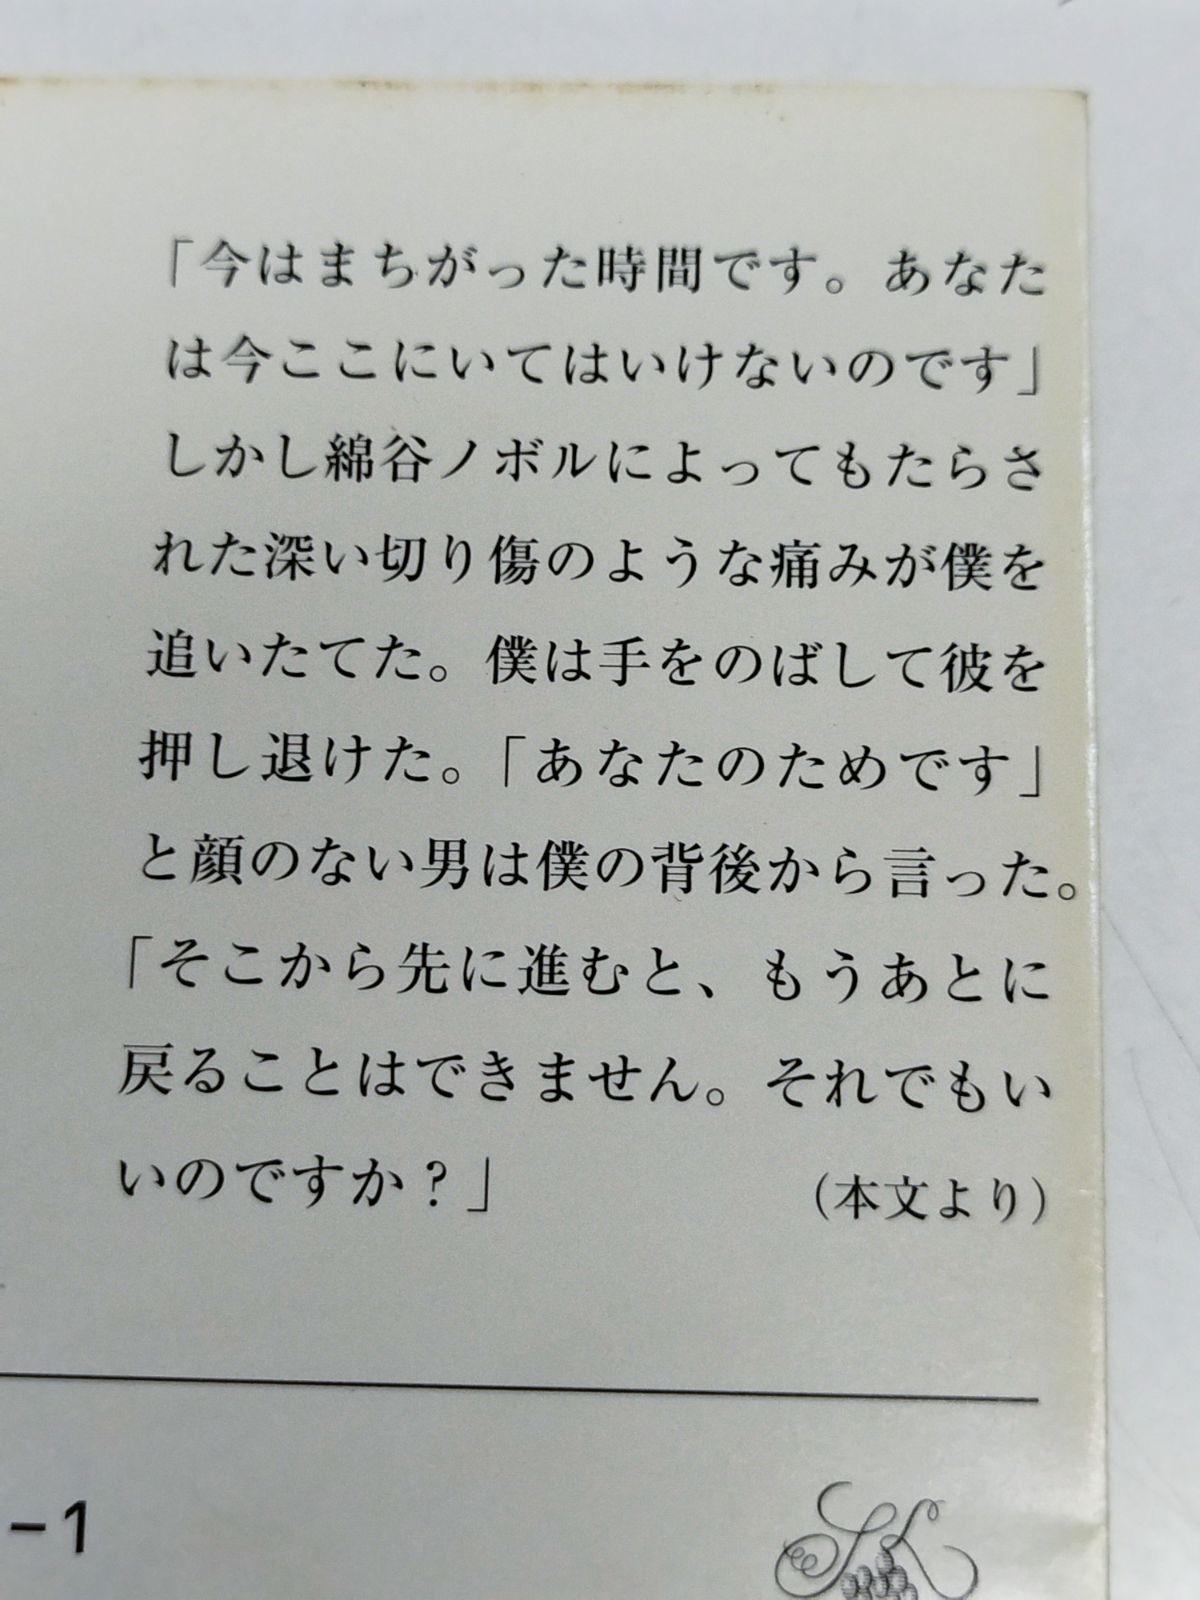 「今はまちがった時間です。あなた
は今ここにいてはいけないのです」
しかし綿谷ノボルによってもたらさ
れた深い切り傷のような痛みが僕を
追いたてた。僕は手をのばして彼を
押し退けた。「あなたのためです」
と顔のない男は僕の背後から言った。
「そこから先に進むと、もうあとに
戻ることはできません。それでもい
いのですか？」
（本文より）
-1
SK